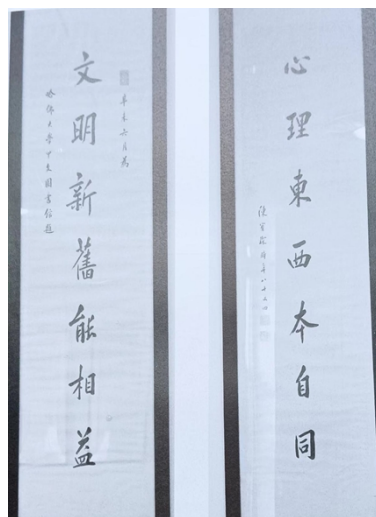 心理東西本自同
陳寶琛時年八十有四
辛未月為
文明新舊能相益
哈佛大學中文圖書館題